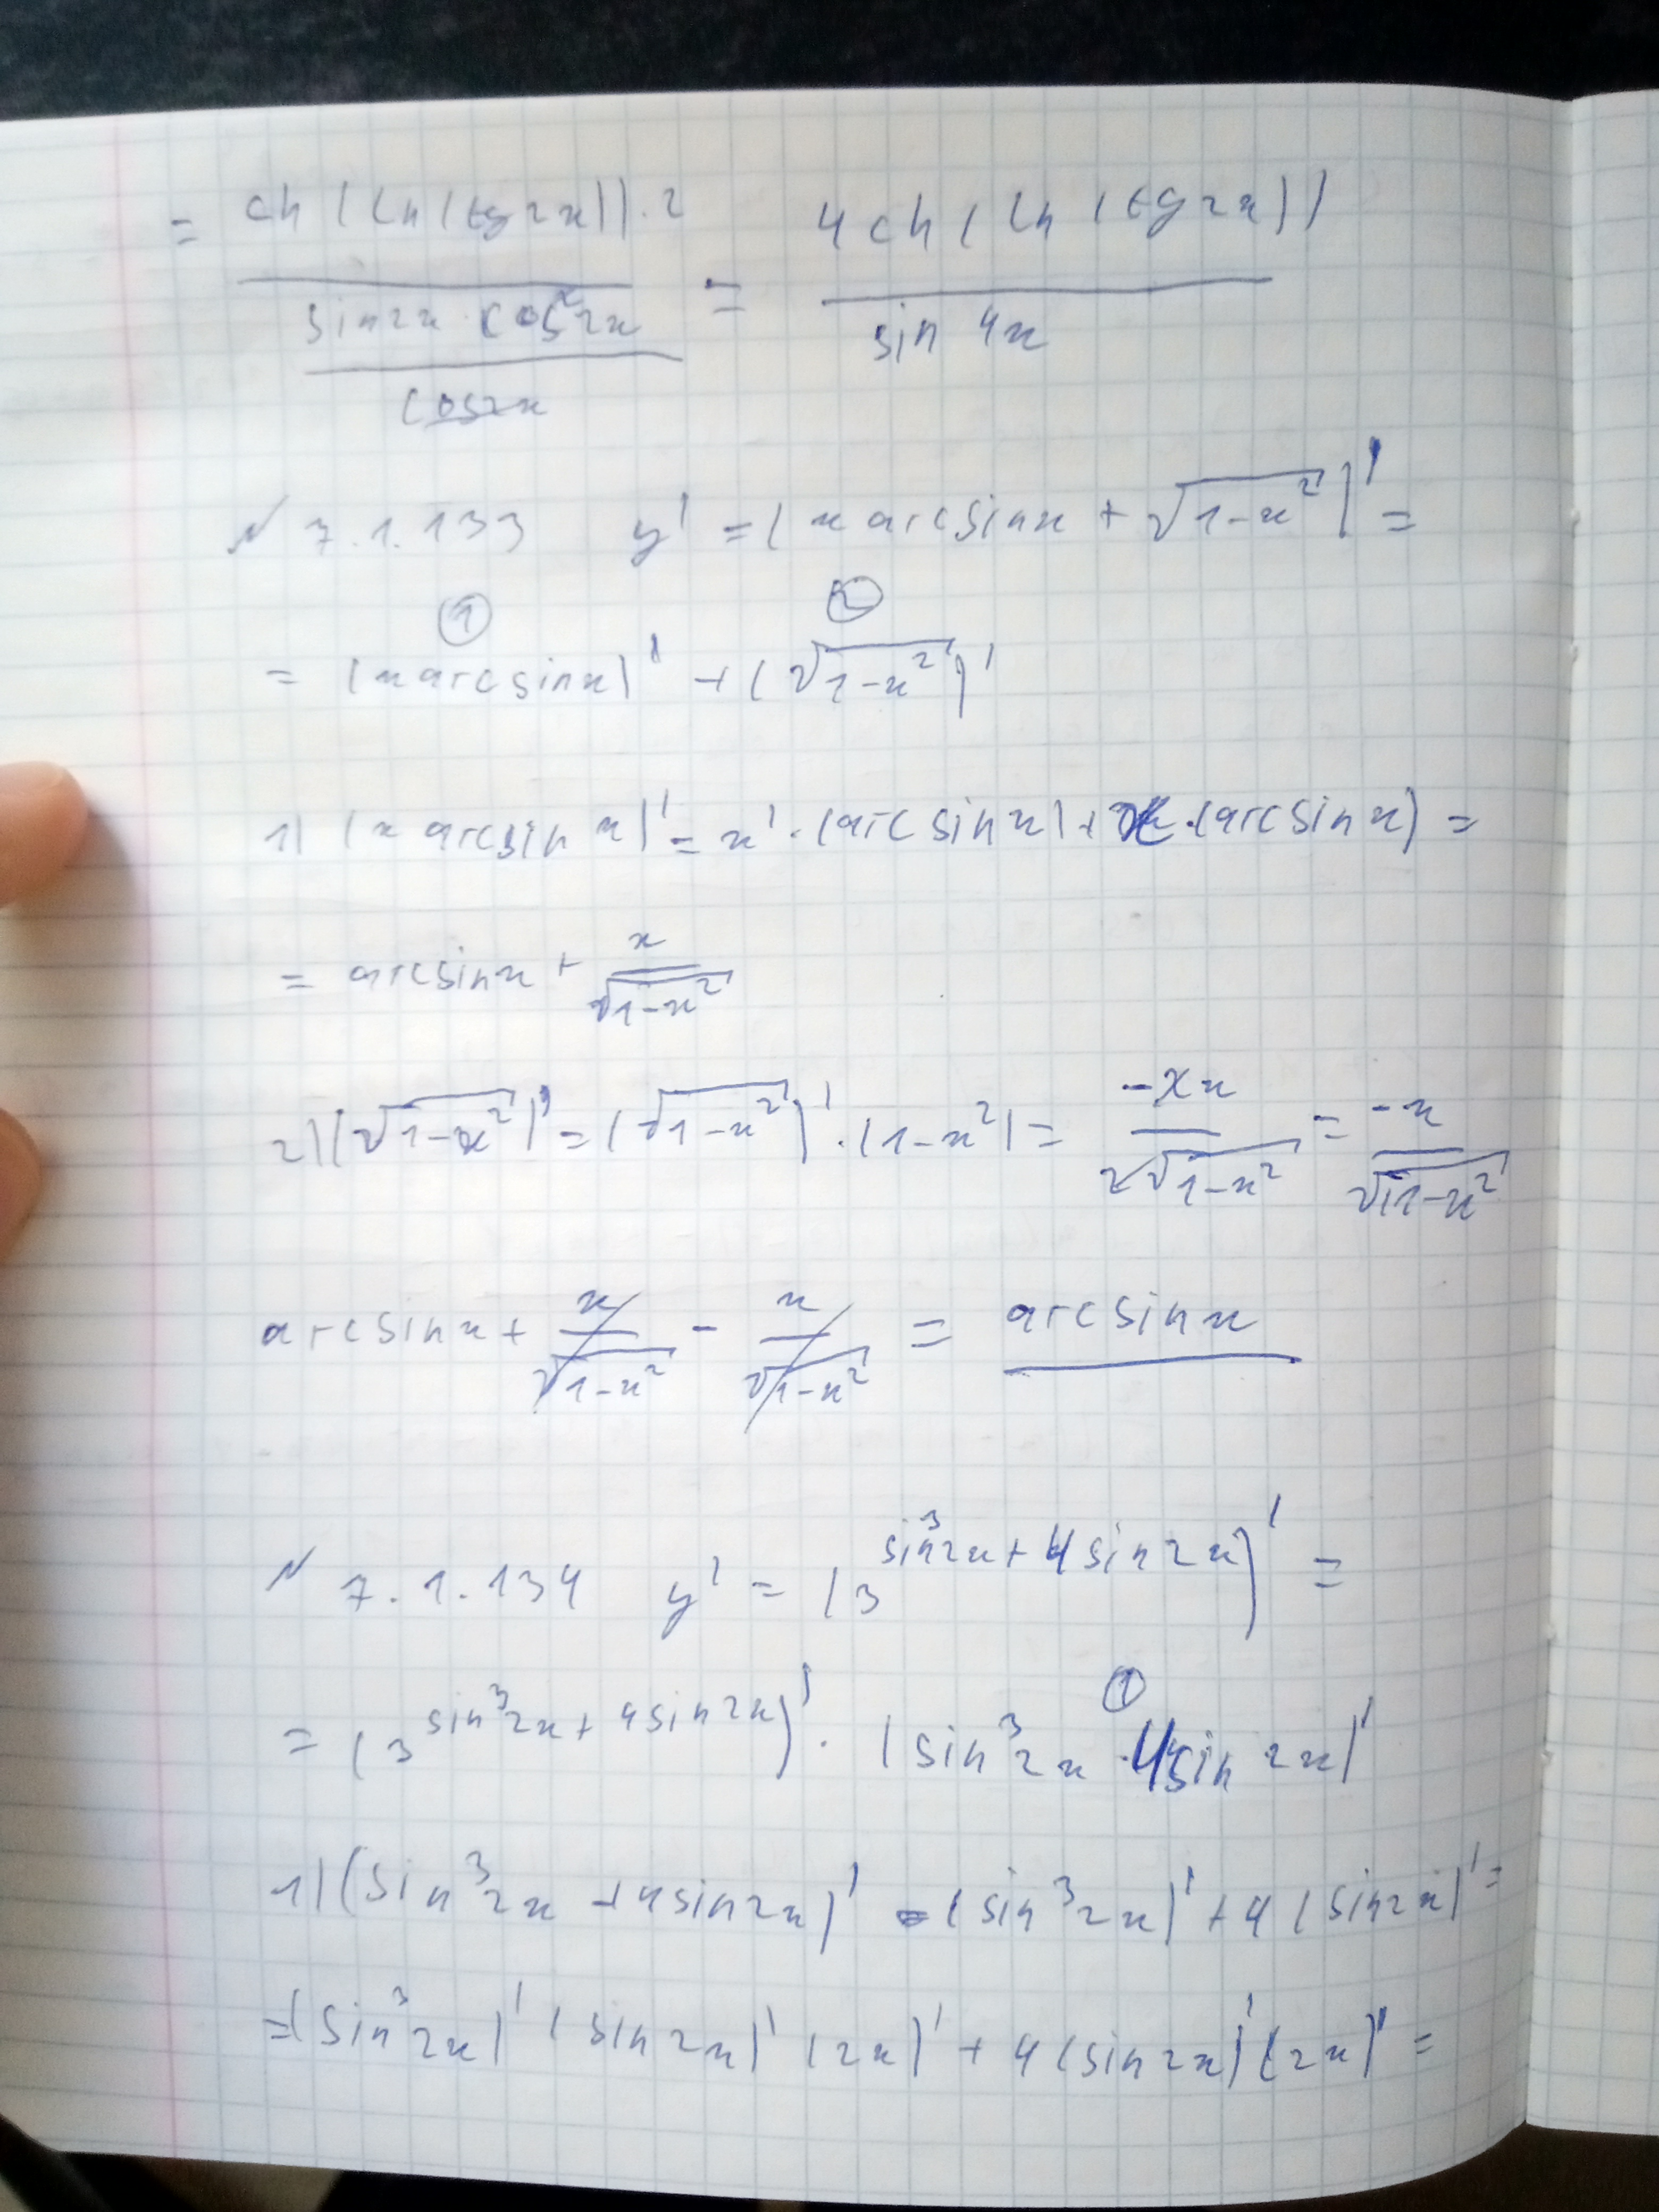 = ch(ln(tg2x))·2 / (sin2x·cos²2x / cos2x) = 4ch(ln(tg2x)) / sin 4x
№ 7.1.133 y' = (x arcsinx + √(1-x²))' =
① ②
= (x arcsinx)' + (√(1-x²))'
1) (x arcsin x)' = x'·(arcsin x) + x·(arcsin x) =
= arcsinx + x/√(1-x²)
2) (√(1-x²))' = (√(1-x²))'·(1-x²) = -2x / 2√(1-x²) = -x / √(1-x²)
arcsinx + x/√(1-x²) - x/√(1-x²) = arcsinx
№ 7.1.134 y' = (3^(sin³2x + 4sin2x))' =
①
= (3^(sin³2x + 4sin2x))' · (sin³2x · 4sin 2x)'
1) (sin³2x + 4sin2x)' = (sin³2x)' + 4(sin2x)' =
= (sin³2x)' (sin2x)' (2x)' + 4(sin2x)' (2x)' =